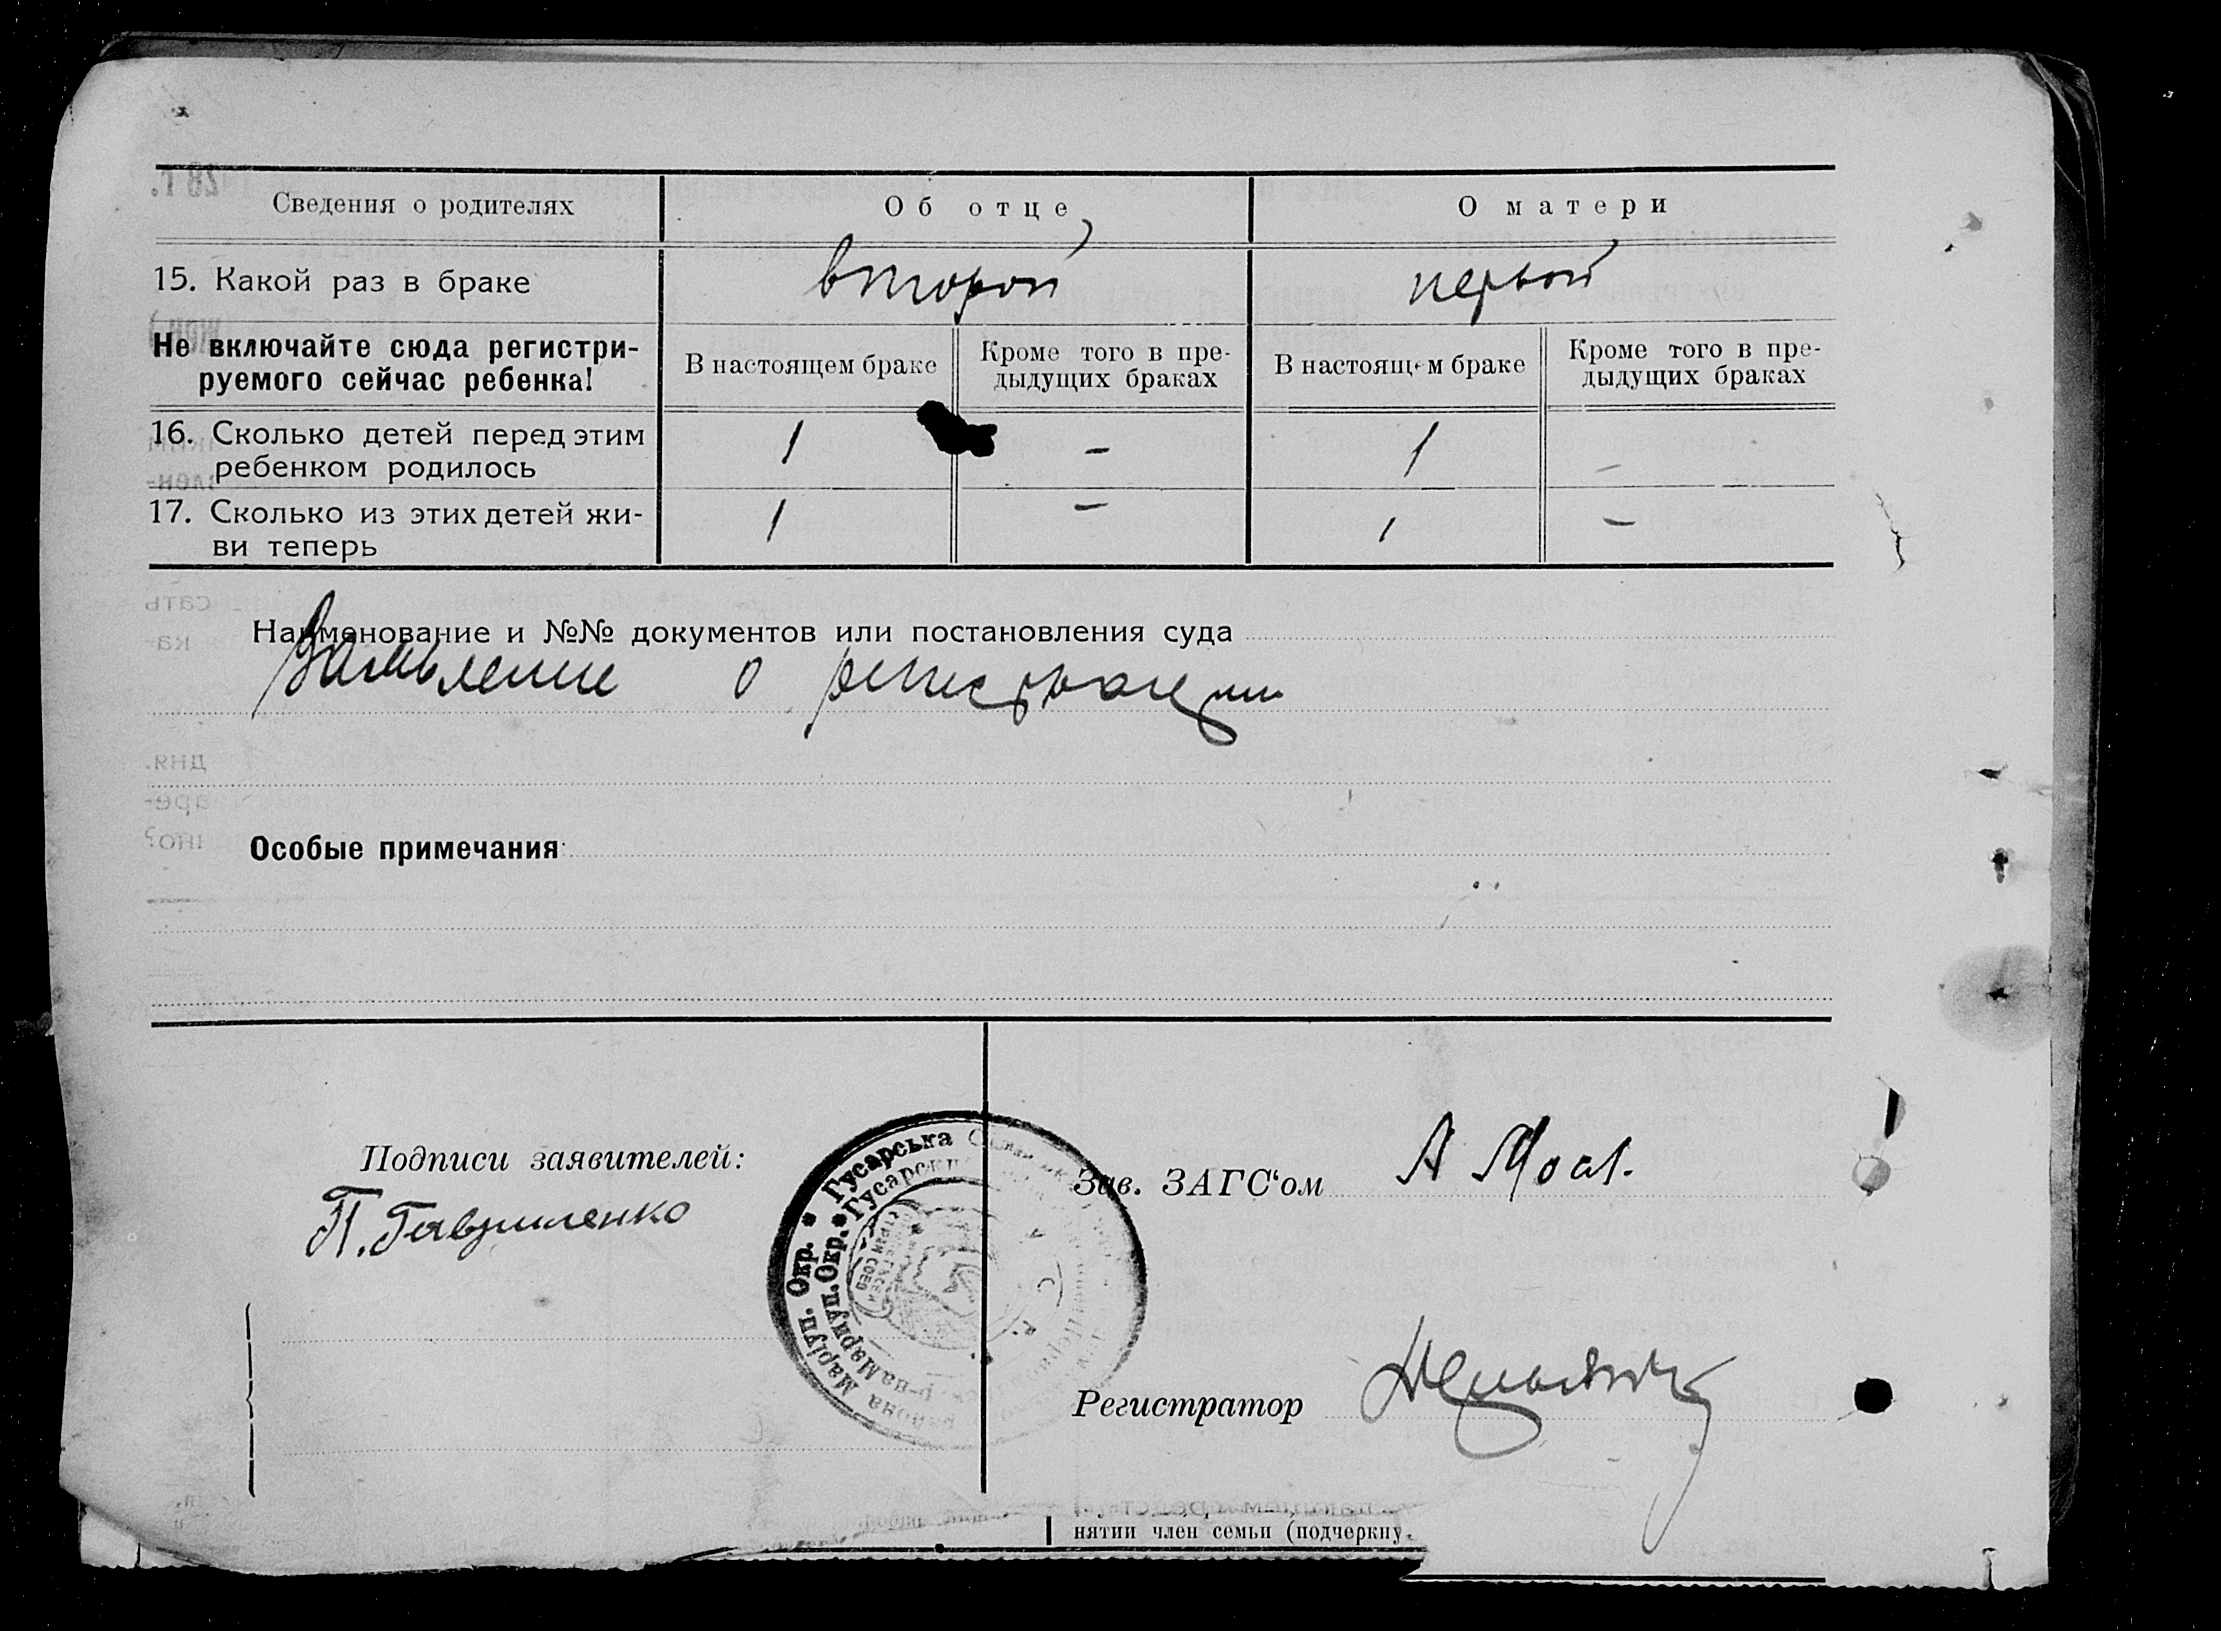 Сведения о родителях Об отце О матери
15. Какой раз в браке второй первой
Не включайте сюда регистри-
руемого сейчас ребенка!
В настоящем браке
Кроме того в пре-
дыдущих браках
В настоящем браке
Кроме того в пре-
дыдущих браках
16. Сколько детей перед этим
ребенком родилось
1 – 1 –
17. Сколько из этих детей жи-
ви теперь
1 – 1 –
Наименование и №№ документов или постановления суда
Заявление о регистрации
Особые примечания
Подписи заявителей:
П. Гавриленко
Гусарська
Маріуп. Окр.
Мариуп. Окр.
района
Зав. ЗАГС‘ом А
Регистратор
нятии член семьи (подчеркну